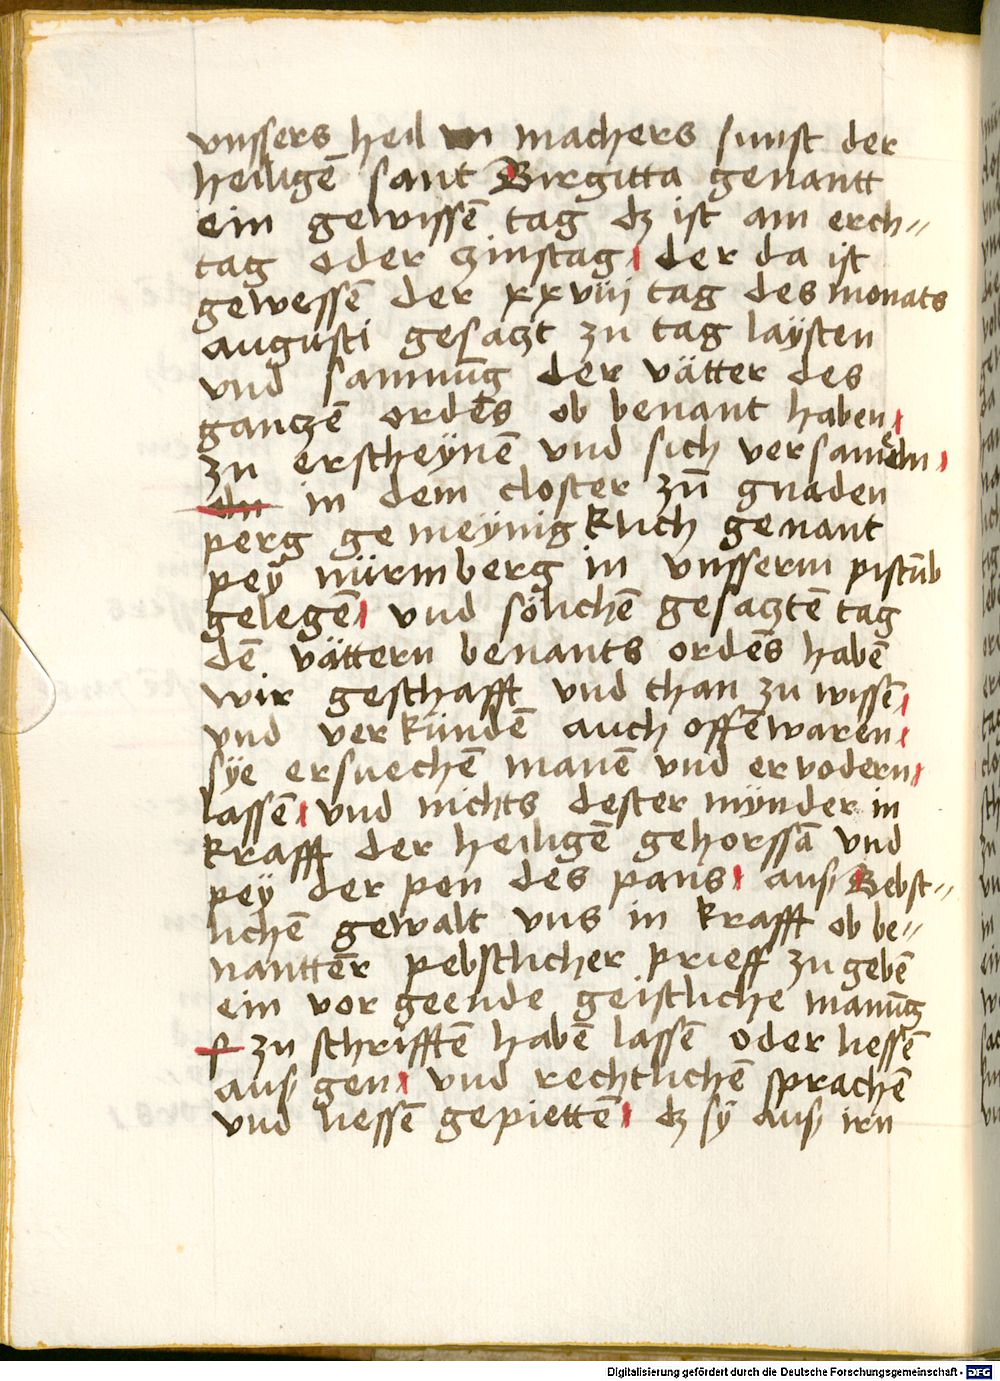 vnssers heil machers sunst der
heiligē sant Birgitta genantt
ein gewissē tag dz ist am erch〃
tag oder zinstag der da ist
gewessē der xxviij tag des monats
augusti gesaczt zu tag laÿsten
vnd samnūg der vätter des
ganczē ordēs ob benant haben
zu erscheÿnē vnd sich versameln
in dem closter zū gnaden
perg gemeÿnigklich genant
peÿ nürmberg in vnsserm pistūb
gelegē vnd sölichē gesacztē tag
dē vättern benants ordēs habē
wir geschafft vnd than zu wissē
vnd verkündē auch offēwaren
sÿe ersuechē manē vnd ervodern
lassē vnd nichts dester mÿnder in
krafft der heiligē gehorssā vnd
peÿ der pen des pans aus Bebst〃
lichē gewalt vns in krafft ob be〃
nanttēr pebstlicher prieff zu gebē
ein vor geende geistliche manūg
zu schrifftē habē lassē oder liessē
aus gen vnd rechtlichē sprachē
vnd liessē gepiettē dz sÿ aus irn
Digitalisierung gefördert durch die Deutsche Forschungsgemeinschaft - DFG